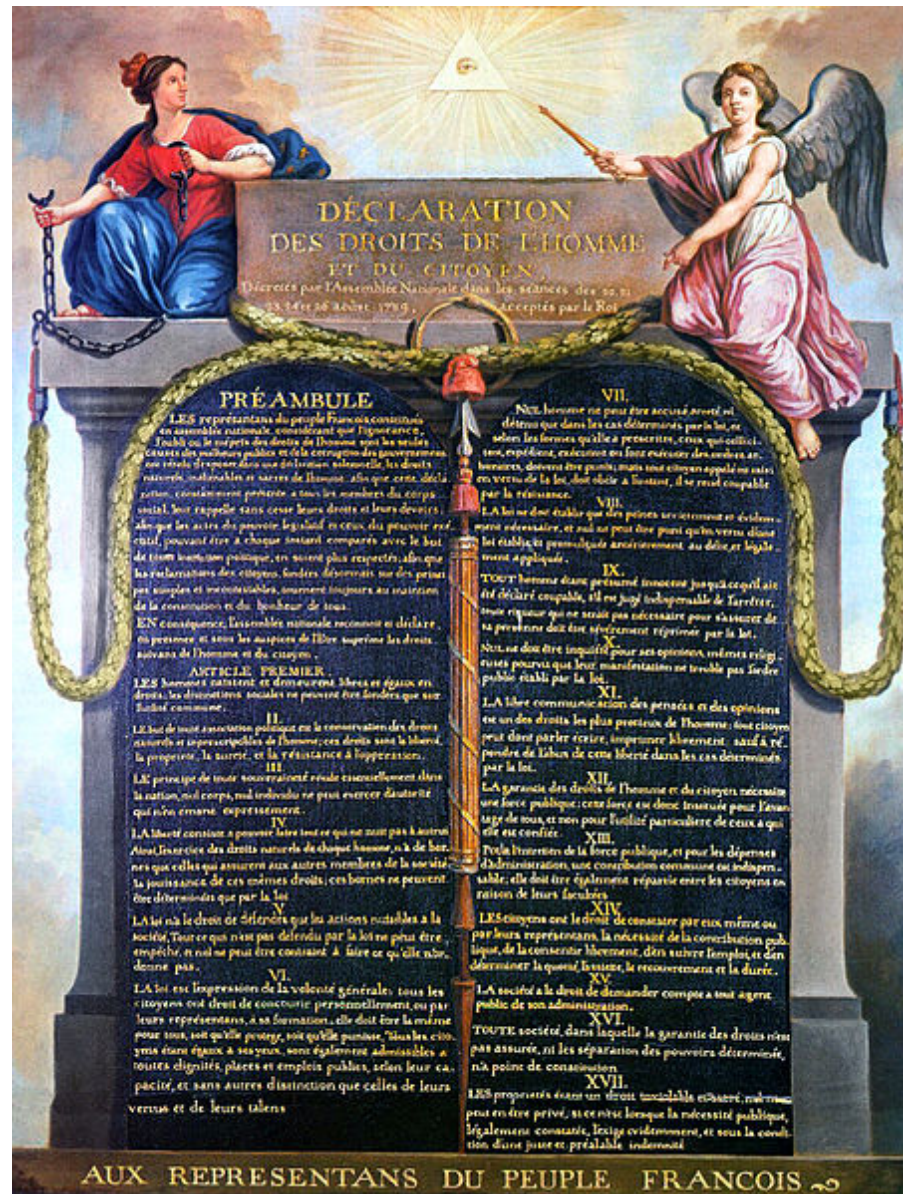 DÉCLARATION
DES DROITS DE L'HOMME
ET DU CITOYEN,
Décretés par l'Assemblée Nationale dans les séances des 20. 21
23. 24 et 26 août 1789, acceptés par le Roi
PRÉAMBULE
LES représentans du peuple François constitués
en assemblée nationale, considérant que l'ignorance
l'oubli ou le mépris des droits de l'homme sont les seules
causes des malheurs publics et de la corruption des gouvernemens
ont résolu d'exposer dans une déclaration solemnelle, les droits
naturels, inaliénables et sacrés de l'homme, afin que cette décla
ration, constamment présente a tous les membres du corps
social, leur rappelle sans cesse leurs droits et leurs devoirs
afin que les actes du pouvoir législatif et ceux du pouvoir exé
cutif, pouvant être à chaque instant comparés avec le but
de toute institution politique, en soient plus respectés; afin que
les réclamations des citoyens, fondées désormais sur des princi
pes simples et incontestables, tournent toujours au maintien
de la constitution et du bonheur de tous.
EN conséquence, l'assemblée nationale reconnoit et déclare
en présence et sous les auspices de l'Etre suprême les droits
suivans de l'homme et du citoyen.
ARTICLE PREMIER.
LES hommes naissent et demeurent libres et égaux en
droits. les distinctions sociales ne peuvent être fondées que sur
l'utilité commune.
II.
LE but de toute association politique est la conservation des droits
naturels et imprescriptibles de l'homme; ces droits sont la liberté,
la propriété, la sureté, et la résistance à l'oppression.
III.
LE principe de toute souveraineté réside essentiellement dans
la nation, nul corps, nul individu ne peut exercer d'autorité
qui n'en émane expressément.
IV.
LA liberté consiste a pouvoir faire tout ce qui ne nuit pas à autrui
Ainsi, l'exercice des droits naturels de chaque homme, n'a de bor
nes que celles qui assurent aux autres membres de la société
la jouissance de ces mêmes droits; ces bornes ne peuvent
être déterminées que par la loi
V.
LA loi n'a le droit de défendre que les actions nuisibles à la
société. Tout ce qui n'est pas défendu par la loi ne peut être
empêché, et nul ne peut être contraint à faire ce qu'elle n'or
donne pas.
VI.
LA loi est l'expression de la volonté générale; tous les
citoyens ont droit de concourir personnellement, ou par
leurs représentans, à sa formation; elle doit être la même
pour tous, soit qu'elle protege, soit qu'elle punisse. Tous les cito
yens étant égaux à ses yeux, sont également admissibles a
toutes dignités, places et emplois publics, selon leur ca
pacité, et sans autres distinction que celles de leurs
vertus et de leurs talens
VII.
NUL homme ne peut être accusé, arreté ni
détenu que dans les cas déterminés par la loi, et
selon les formes qu'elle à prescrites, ceux qui sollici
tent, expédient, exécutent ou font exécuter des ordres ar
bitraires, doivent être punis; mais tout citoyen appelé ou saisi
en vertu de la loi, doit obéir a l'instant, il se rend coupable
par la résistance.
VIII.
LA loi ne doit établir que des peines strictement et évidem
ment nécessaire, et nul ne peut être puni qu'en vertu d'une
loi établie et promulguée antérieurement au délit, et légale
ment appliquée.
IX.
TOUT homme étant présumé innocent jusqu'à ce qu'il ait
été déclaré coupable, s'il est jugé indispensable de l'arrêter,
toute rigueur qui ne serait pas nécessaire pour s'assurer de
sa personne doit être sévèrement réprimée par la loi.
X.
NUL ne doit être inquiété pour ses opinions, mêmes religi
euses pourvu que leur manifestation ne trouble pas l'ordre
public établi par la loi.
XI.
LA libre communication des pensées et des opinions
est un des droits les plus précieux de l'homme; tout citoyen
peut dont parler écrire, imprimer librement: sauf à ré
pondre de l'abus de cette liberté dans les cas déterminés
par la loi.
XII.
LA garantie des droits de l'homme et du citoyen nécessite
une force publique; cette force est donc instituée pour l'avan
tage de tous, et non pour l'utilité particuliere de ceux à qui
elle est confiée.
XIII.
POUR l'entretien de la force publique, et pour les dépenses
d'administration, une contribution commune est indispen
sable; elle doit être également répartie entre les citoyens en
raison de leurs facultées
XIV.
LES citoyens ont le droit de constater par eux même ou
par leurs représentans, la nécessité de la contribution pub
lique, de la consentir librement, d'en suivre l'emploi, et d'en
déterminer la quotité, l'assiete, le recouvrement et la durée.
XV.
LA société a le droit de demander compte a tout agent
public de son administration.
XVI.
TOUTE société, dans laquelle la garantie des droits n'est
pas assurée, ni les séparation des pouvoirs déterminée,
n'a point de constitution
XVII.
LES propriétés étant un droit inviolable et sacré, nul ne
peut en être privé, si ce n'est lorsque la nécessité publique,
légalement constatée, l'exige évidemment, et sous la condi
tion d'une juste et préalable indemnité
AUX REPRESENTANS DU PEUPLE FRANCOIS